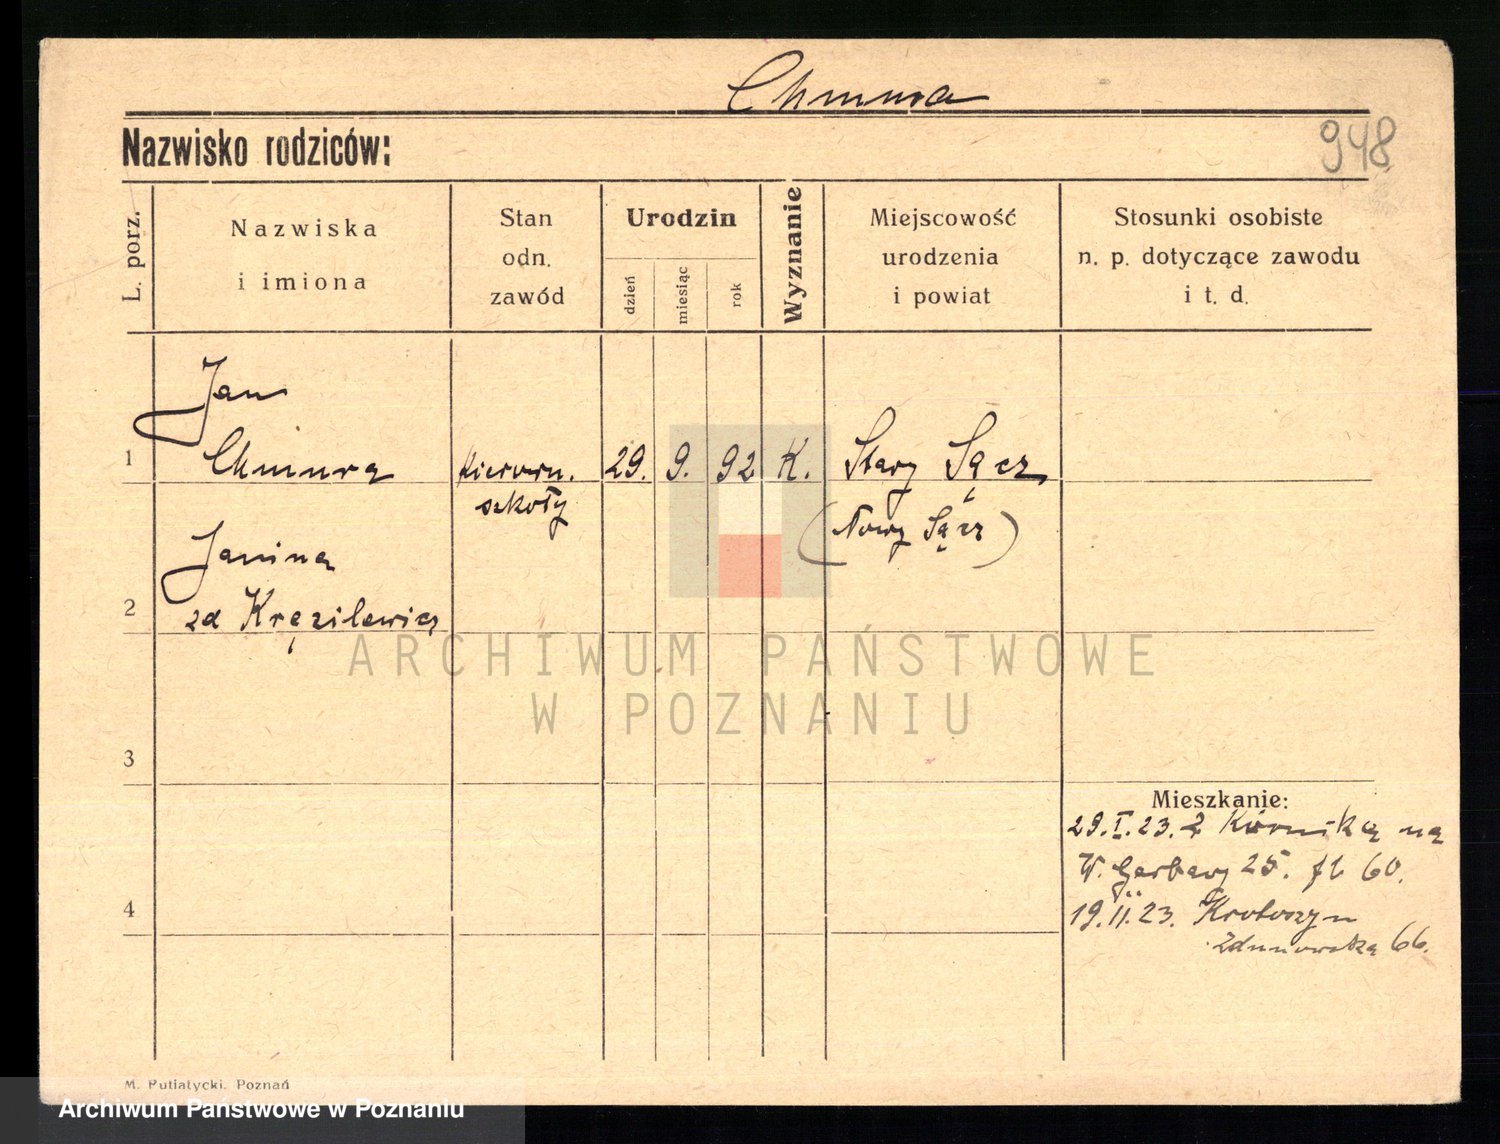 Chmura
Nazwisko rodziców:
948
L. porz.
Nazwiska
i imiona
Stan
odn.
zawód
Urodzin
dzień
miesiąc
rok
Wyznanie
Miejscowość
urodzenia
i powiat
Stosunki osobiste
n. p. dotyczące zawodu
i t. d.
Jan
1 Chmura kierown. 29. 9. 92 K. Stary Sącz
szkoły (Nowy Sącz)
Janina
2
zd
3
Mieszkanie:
29.I.23. z Kórnika na
W. Garbary 25. 60.
4
19.II.23. Krotoszyn
Zdunowska 66.
ARCHIWUM PAŃSTWOWE
W POZNANIU
M. Putiatycki. Poznań
Archiwum Państwowe w Poznaniu